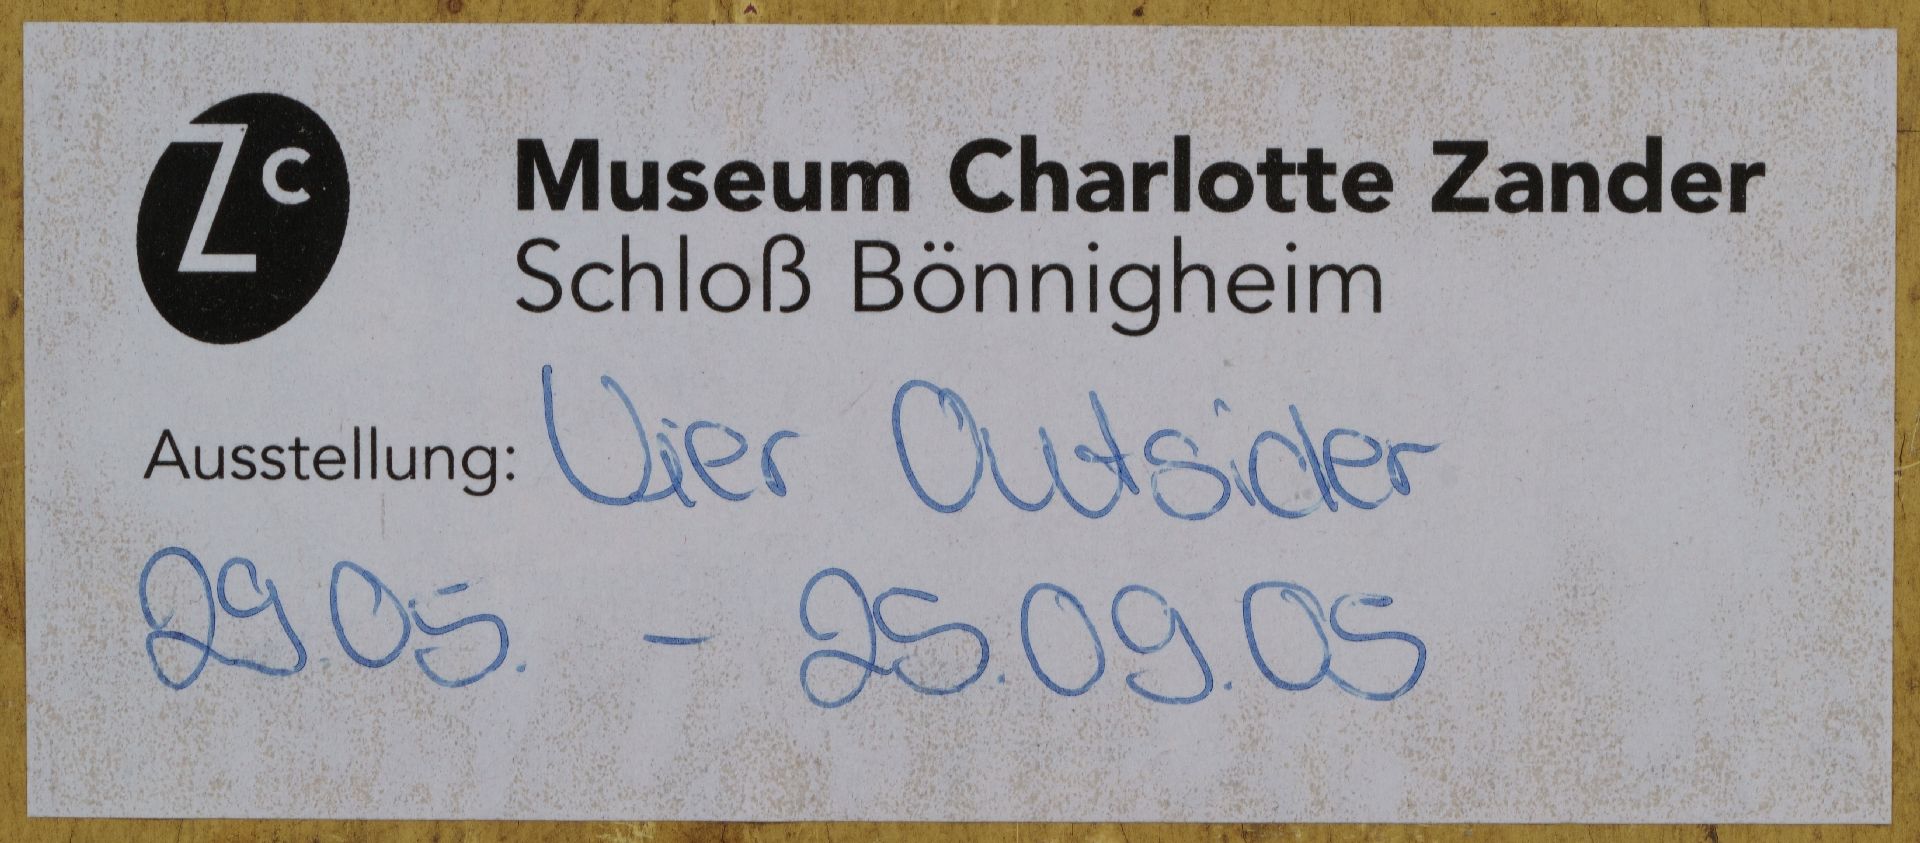 Zc
Museum Charlotte Zander
Schloß Bönnigheim
Ausstellung: Vier Outsider
29.05. - 25.09.05